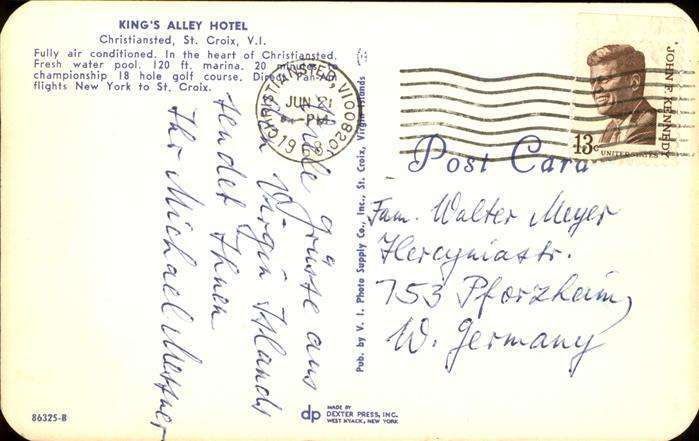 KING'S ALLEY HOTEL
Christiansted, St. Croix, V.I.
Fully air conditioned. In the heart of Christiansted.
Fresh water pool. 120 ft. marina. 20 minutes to
championship 18 hole golf course. Direct Pan-Am
flights New York to St. Croix.
CHRISTIANSTED, VI 00820
JUN 21
PM
Viele Grüsse aus
den Virgin Islands
sendet Ihnen
Ihr Michael
Pub. by V. I. Photo Supply Co., Inc., St. Croix, Virgin Islands
JOHN F. KENNEDY
13c
UNITED STATES
Post Card
Fam. Walter Meyer
Hercyniastr.
753 Pforzheim,
W. Germany
86325-B
dp
MADE BY
DEXTER PRESS, INC.
WEST NYACK, NEW YORK